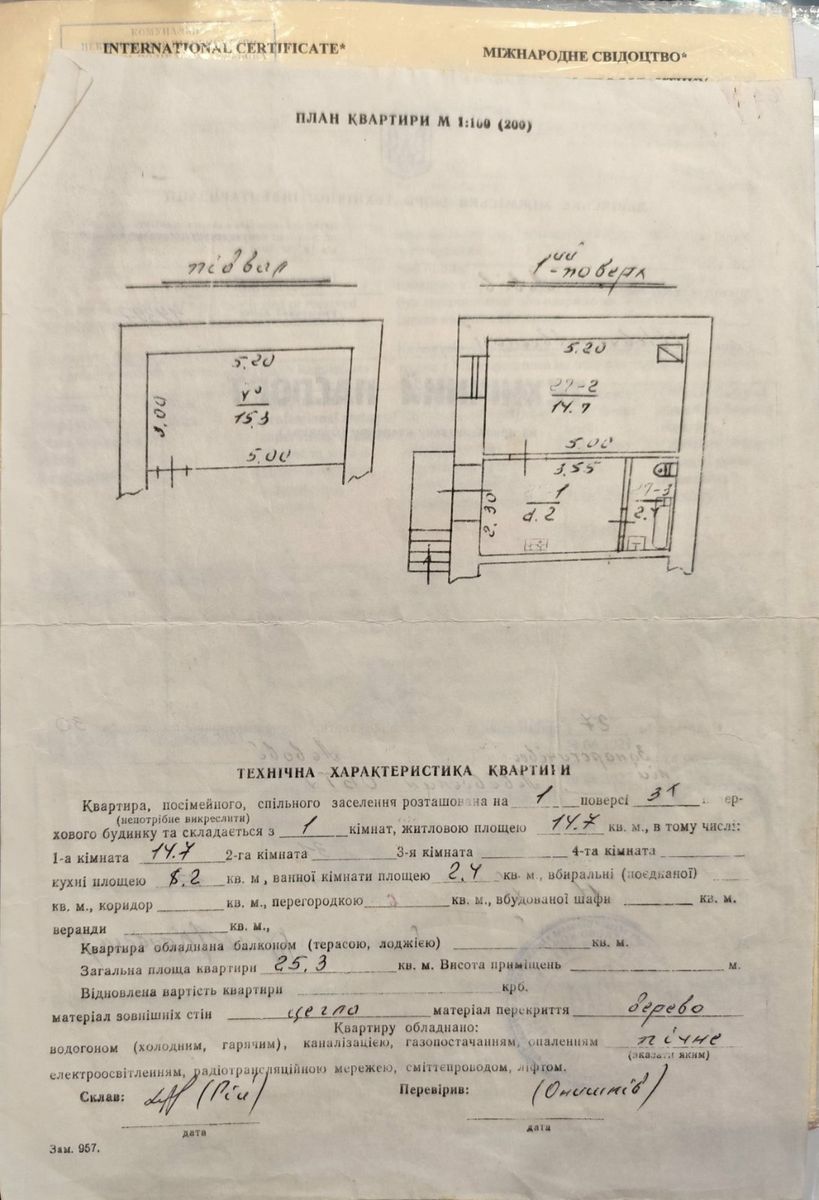 INTERNATIONAL CERTIFICATE*
МІЖНАРОДНЕ СВІДОЦТВО*
ПЛАН КВАРТИРИ М 1:100 (200)
підвал
1ий-поверх
5,20
3,00
15,3
5,00
5,20
27-2
14.7
5,00
3,55
2,30
2,4
ТЕХНІЧНА ХАРАКТЕРИСТИКА КВАРТИРИ
Квартира, посімейного, спільного заселення розташована на 1 поверсі 3х повер-
(непотрібне викреслити)
хового будинку та складається з 1 кімнат, житловою площею 14.7 кв. м., в тому числі:
1-а кімната 14.7 2-га кімната 3-я кімната 4-та кімната
кухні площею 8.2 кв. м, ванної кімнати площею 2,4 кв. м., вбиральні (поєднаної)
кв. м., коридор кв. м., перегородкою кв. м., вбудованої шафи кв. м.
веранди кв. м.,
Квартира обладнана балконом (терасою, лоджією) кв. м.
Загальна площа квартири 25,3 кв. м. Висота приміщень м.
Відновлена вартість квартири крб.
матеріал зовнішніх стін цегла матеріал перекриття дерево
Квартиру обладнано:
водогоном (холодним, гарячим), каналізацією, газопостачанням, опаленням пічне
(вказати яким)
електроосвітленням, радіотрансляційною мережею, сміттєпроводом, ліфтом.
Склав: Перевірив:
дата дата
Зам. 957.